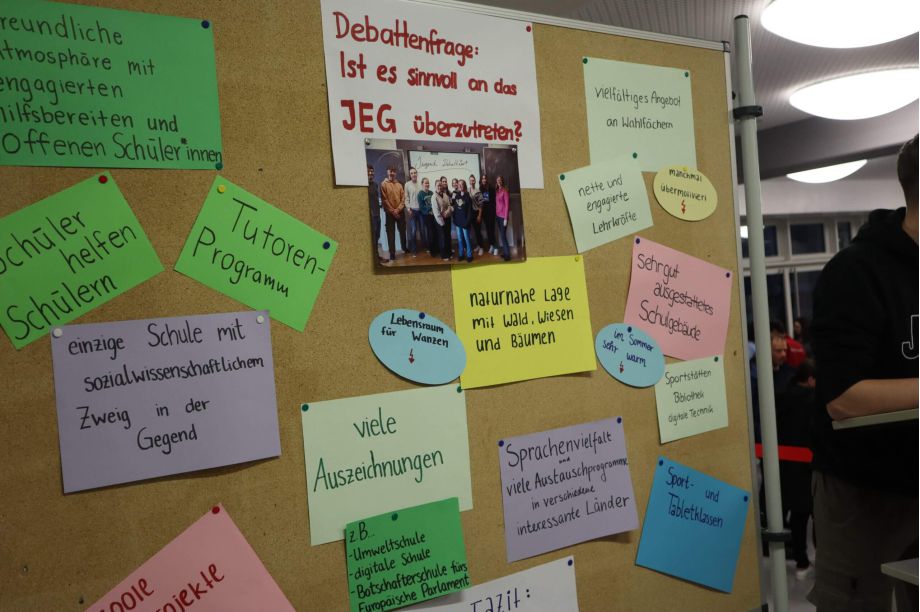 freundliche
Atmosphäre mit
engagierten
hilfsbereiten und
Offenen Schüler:innen
Debattenfrage:
Ist es sinnvoll an das
JEG überzutreten?
Jugend debattiert
vielfältiges Angebot
an Wahlfächern
nette und
engagierte
Lehrkräfte
manchmal
übermotiviert
Schüler
helfen
Schülern
Tutoren-
Programm
naturnahe Lage
mit Wald, Wiesen
und Bäumen
Lebensraum
für Wanzen
Sehr gut
ausgestattetes
Schulgebäude
im Sommer
sehr warm
Sportstätten
Bibliothek
digitale Technik
einzige Schule mit
sozialwissenschaftlichem
Zweig in der
Gegend
viele
Auszeichnungen
z.B...
-Umweltschule
-digitale Schule
-Botschafterschule fürs
Europäische Parlament
Sprachenvielfalt
und
viele Austauschprogramme
in verschiedene
interessante Länder
Sport- und
Tabletklassen
coole
Projekte
Fazit: